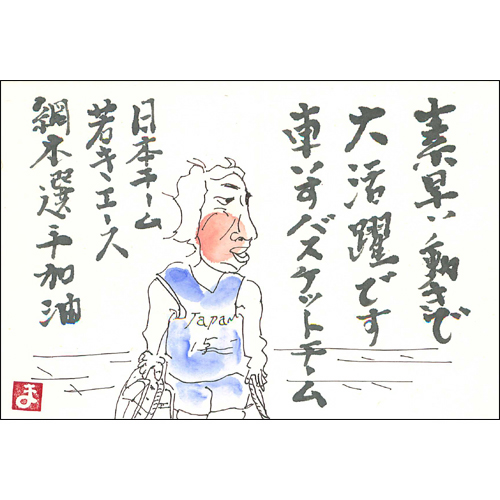 素早い動きで
大活躍です
車いすバスケットチーム
日本チーム
若きエース
網本選手加油
Japan
15
ま